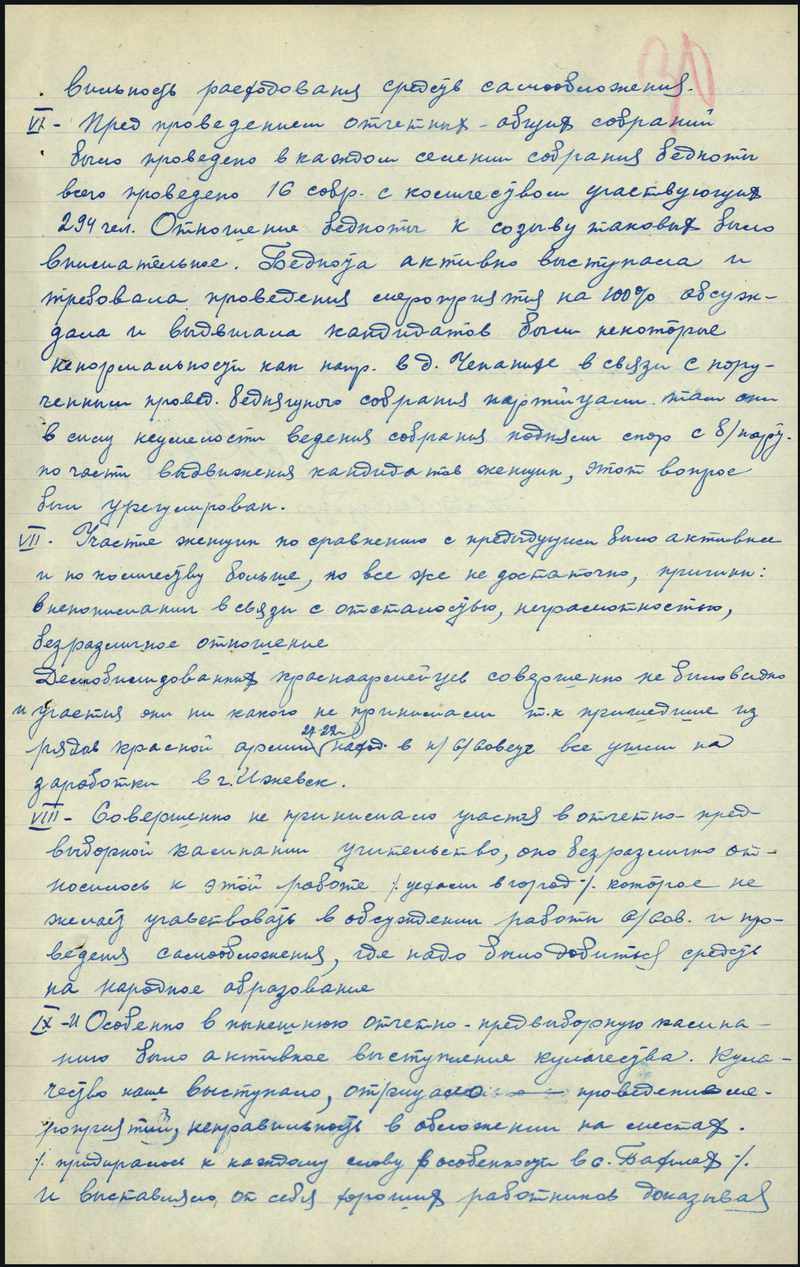 30
вильность расходования средств самообложения.
VI - Пред проведением отчетных - общих собраний
было проведено в каждом селении собрания бедноты
всего проведено 16 собр. с количеством участвующих
294 чел. Отношение бедноты к созыву таковых было
внимательное. Беднота активно выступала и
требовала проведения мероприятия на 100% обсуж-
дала и выдвигала кандидатов были некоторые
ненормальности как напр. в д. Чепанихе в связи с пору-
ченным провед. бедняцкого собрания партийцами там они
в силу неумелости ведения собрания подняли спор с б/парт.
по части выдвижения кандидатов женщин, этот вопрос
был урегулирован.
VII. Участие женщин по сравнению с предыдущим было активнее
и по количеству больше, но все же не достаточно, причины:
в непонимании в связи с отсталостью, неграмотностью,
безразличное отношение
Демобилизованных красноармейцев совершенно не было видно
и участия они ни какого не принимали т.к. пришедшие из
рядов красной армии наход. в н/с/совете все ушли на
заработки в г. Ижевск.
VIII - Совершенно не принимало участия в отчетно-пред-
выборной кампании учительство, оно безразлично от-
носилось к этой работе /. уехали в город ./. которое не
желает участвовать в обсуждении работы с/сов. и про-
ведения самообложения, где надо было добиться средств
на народное образование
IX - И Особенно в нынешнюю отчетно-предвыборную кампа-
нию было активное выступление кулачества. Кула-
чество наше выступало, отрицало проведение ме-
роприятий, неправильность в обложении на местах.
/. придиралось к каждому слову в особенности в с. Бафилах ./.
и выставляло от себя хороших работников доказывая